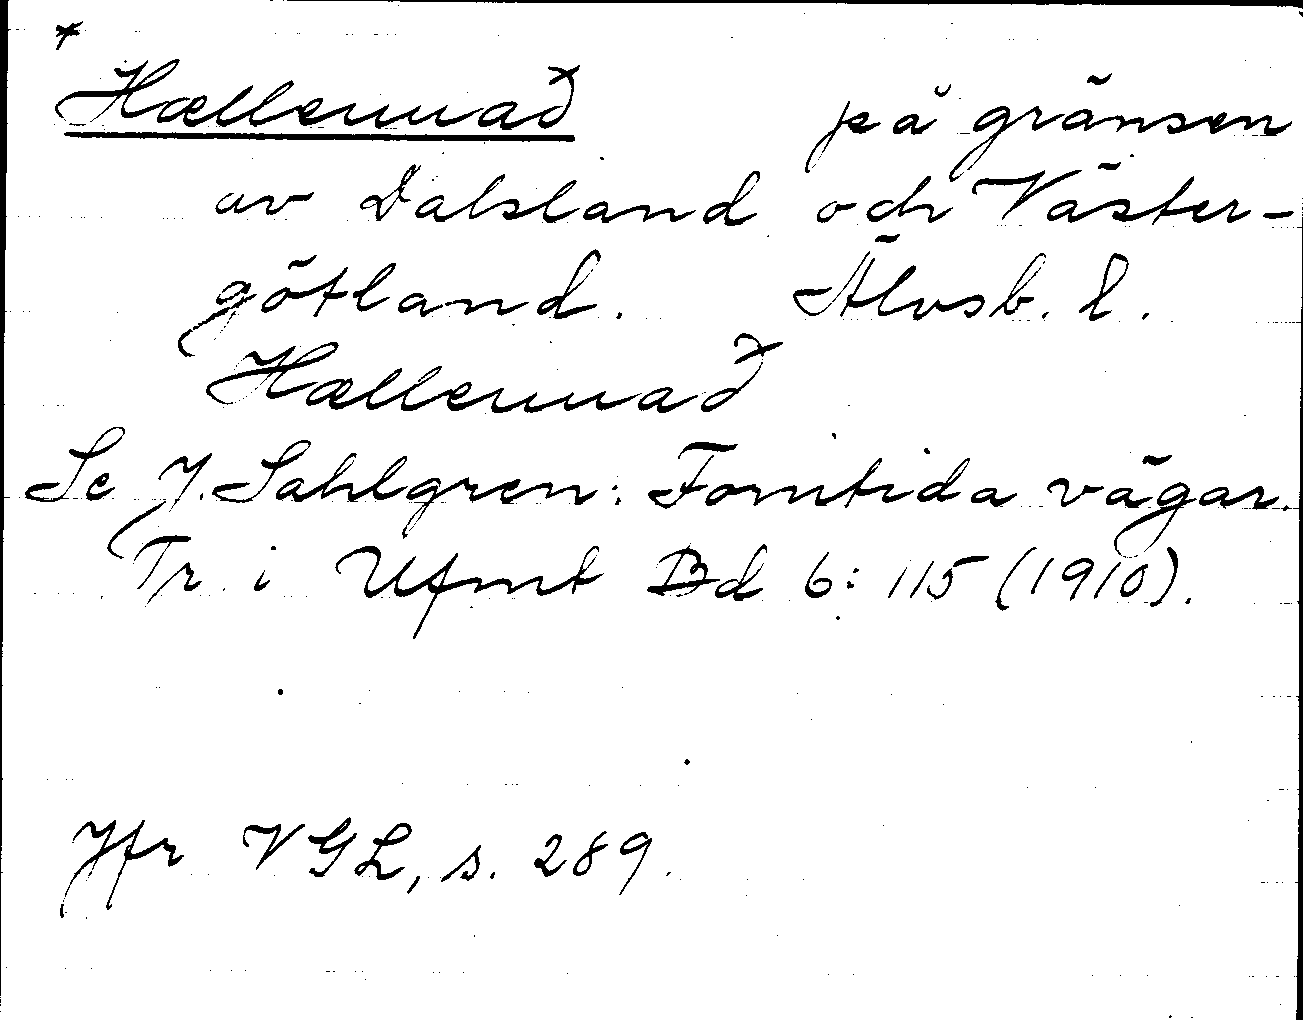 *
Hællervað på gränsen
av Dalsland och Väster-
götland. Älvsb. l.
Hællervað
Se J. Sahlgren: Forntida vägar.
Tr i Ufmt Bd 6: 115 (1910).
Jfr VGL, s. 289.